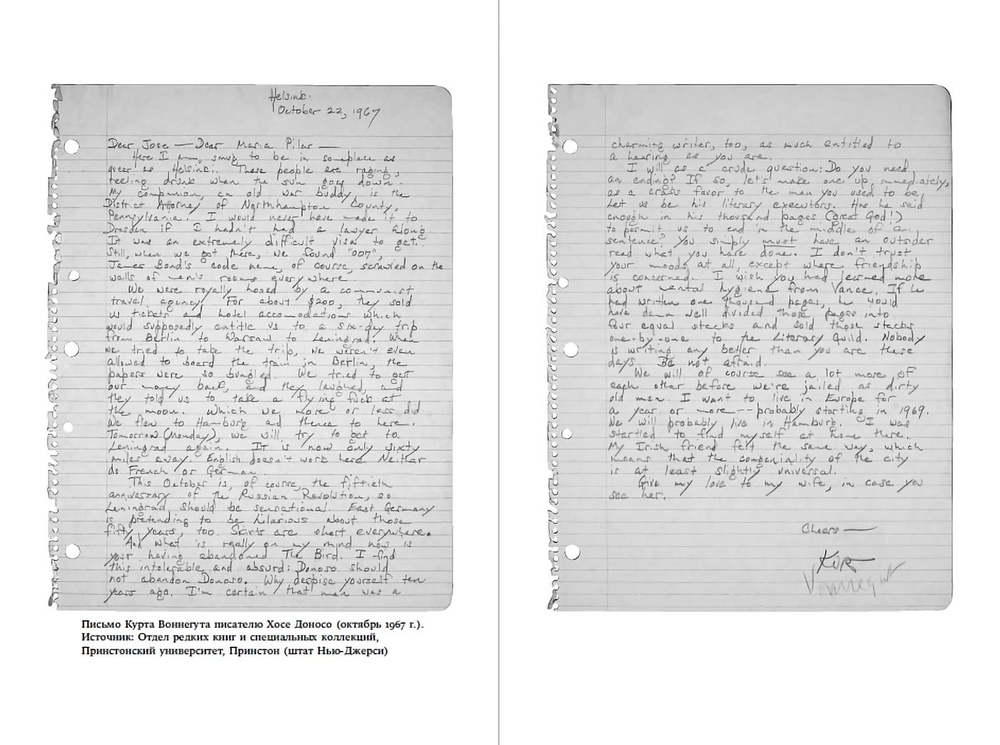 Helsinki
October 22, 1967
Dear Jose — Dear Maria Pilar —
Here I am, smug to be in someplace as
queer as Helsinki. These people are raging,
teeling drunk when the sun goes down.
My companion, an old war buddy, is the
District Attorney of Northhampton County,
Pennsylvania. I would never have made it to
Dresden if I hadn't had a lawyer along.
It was an extremely difficult visa to get.
Still, when we got there, we found "007",
James Bond's code name, of course, scrawled on the
walls of men's rooms everywhere.
We were royally hosed by a communist
travel agency. For about $200, they sold
us tickets and hotel accomodations which
would supposedly entitle us to a six-day trip
from Berlin to Warsaw to Leningrad. When
we tried to take the trip, we weren't even
allowed to board the train in Berlin, the
papers were so bungled. We tried to get
our money back, and they laughed, and
they told us to take a flying fuck at
the moon. Which we more or less did
We flew to Hamburg and thence to here.
Tomorrow (Monday), we will try to get to
Leningrad again. It is now only sixty
miles away. English doesn't work here Neither
do French or German.
This October is, of course, the fiftieth
anniversary of the Russian Revolution, so
Leningrad should be sensational. East Germany
is pretending to be hilarious about those
fifty years, too. Skirts are short everywhere.
And what is really on my mind now is
your having abandoned The Bird. I find
this intolerable and absurd: Donoso should
not abandon Donoso. Why despise yourself ten
years ago. I'm certain that man was a
Письмо Курта Воннегута писателю Хосе Доносо (октябрь 1967 г.).
Источник: Отдел редких книг и специальных коллекций,
Принстонский университет, Принстон (штат Нью-Джерси)
charming writer, too, as much entitled to
a hearing as you are.
I will as a crude question: Do you need
an ending? If so, let's make one up, immediately,
as a crass favor to the man you used to be.
Let us be his literary executors. Has he said
enough in his thousand pages (Great God!)
to permit us to end in the middle of a
sentence? You simply must have an outsider
read what you have done. I don't trust
your moods at all, except where friendship
is concerned. I wish you had learned more
about mental hygiene from Vance. If he
had written one thousand pages, he would
have damn well divided those pages into
four equal stacks and sold those stacks
one-by-one to the Literary Guild. Nobody
is writing any better than you are these
days. Be not afraid.
We will of course see a lot more of
each other before we're jailed as dirty
old men. I want to live in Europe for
a year or more -- probably starting in 1969.
We will probably live in Hamburg. I was
startled to find myself at home there.
My Irish friend felt the same way, which
means that the congeniality of the city
is at least slightly universal.
Give my love to my wife, in case you
see her.
Cheers —
Kurt
Vonnegut